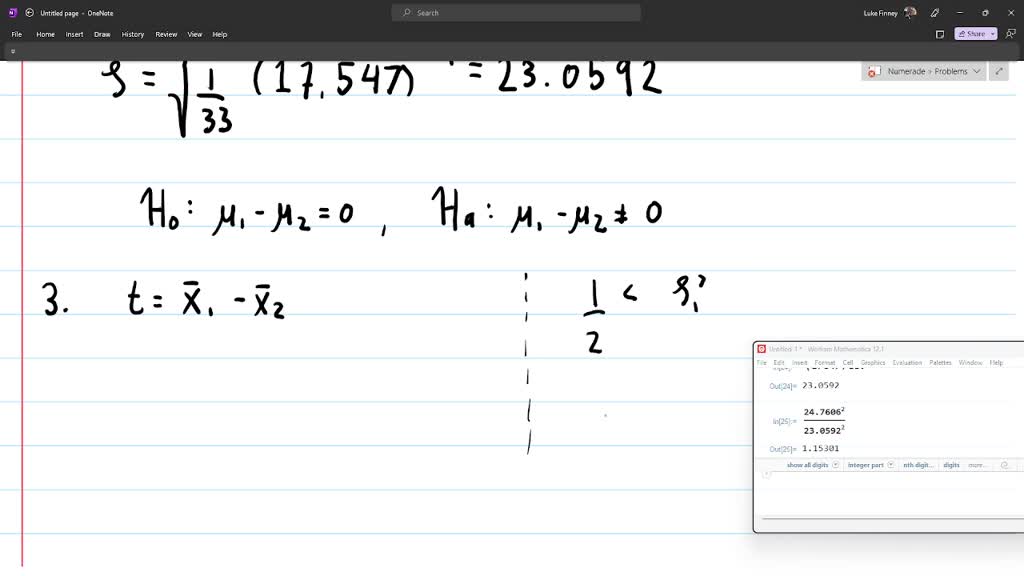 Untitled page - OneNote
Search
Luke Finney
File Home Insert Draw History Review View Help
Share
Numerade » Problems
s = √ 1/33 (17,547) = 23.0592
H₀: μ₁ - μ₂ = 0 , Hₐ: μ₁ - μ₂ ≠ 0
3. t = x̄₁ - x̄₂
1/2 < s₁²
Untitled-1 * - Wolfram Mathematica 12.1
File Edit Insert Format Cell Graphics Evaluation Palettes Window Help
Out[24]= 23.0592
In[25]:= 24.7606² / 23.0592²
Out[25]= 1.15301
show all digits integer part nth digit... digits more...